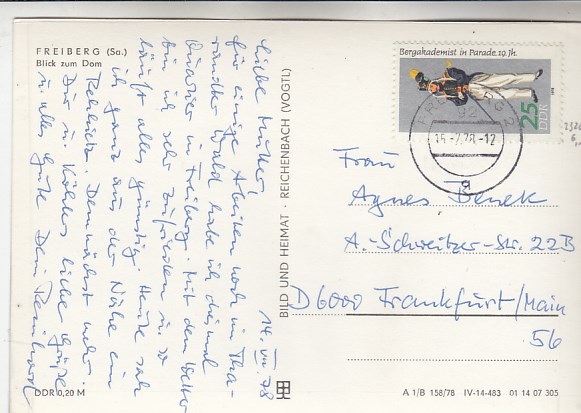 FREIBERG (Sa.)
Blick zum Dom
14. VII. 78
Liebe Mutter,
für einige Arbeiten noch im Tha-
randter Wald habe ich diesmal
Quartier in Freiberg. Mit dem Wetter
bin ich sehr zufrieden, u. so
läuft alles günstig. Heute sah
ich ganz aus der Nähe ein
Rehkitz. Demnächst mehr.
Dir u. Käthes liebe Grüße
u. alles Gute Dein Reinhard
DDR 0,20 M
BILD UND HEIMAT · REICHENBACH (VOGTL)
Bergakademist in Parade, 19. Jh.
25
DDR
FREIBERG 2
92
15.-7.78-12
a
Frau
Agnes Benek
A.-Schweitzer-Str. 22B
D 6000 Frankfurt/Main
56
A 1/B 158/78 IV-14-483 01 14 07 305